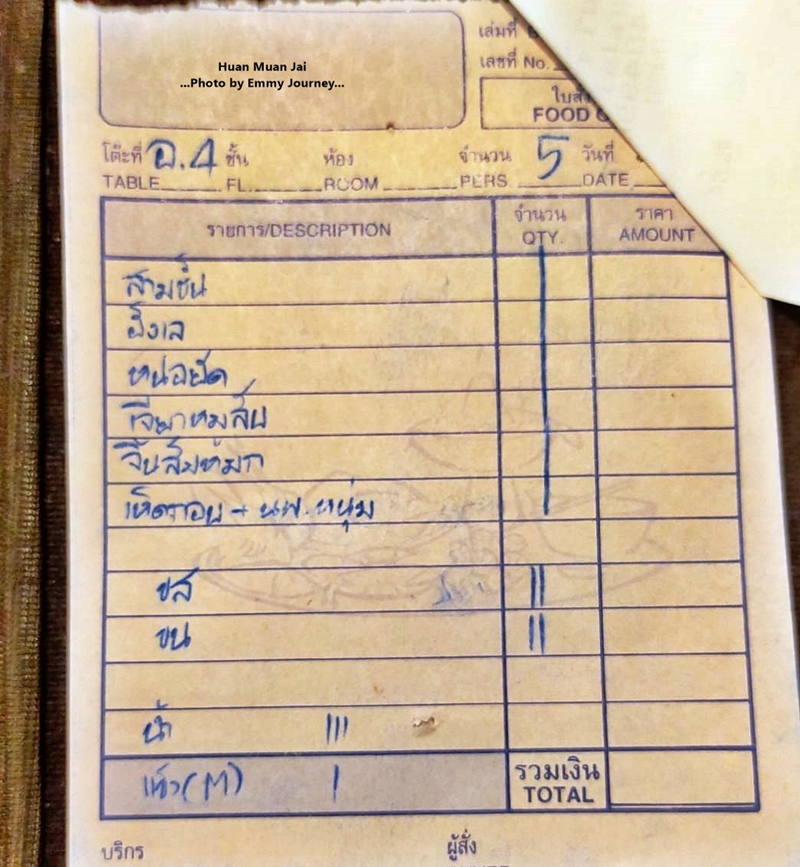 Huan Muan Jai
...Photo by Emmy Journey...
เล่มที่
เลขที่ No.
FOOD
โต๊ะที่ อ.4 ชั้น ห้อง จำนวน 5 วันที่
TABLE FL. ROOM PERS. DATE
รายการ/DESCRIPTION จำนวน QTY. ราคา AMOUNT
สามชั้น
ฮังเล
หน่อยัด
เจียวหมสับ
จิ๊นส้มหมก
เห็ดถอบ + นพ.หนุ่ม
ขส ||
ขน ||
น้ำ |||
แข็ง (M) |
รวมเงิน
TOTAL
บริกร ผู้สั่ง